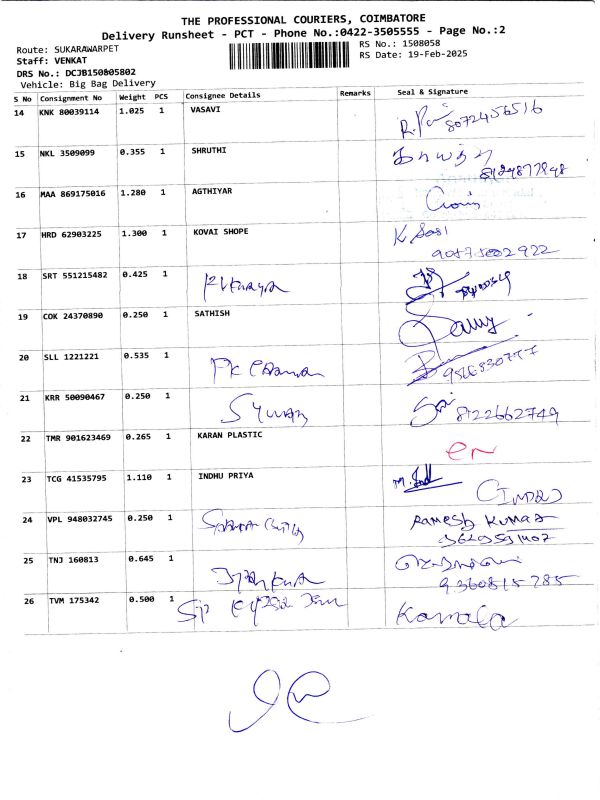 THE PROFESSIONAL COURIERS, COIMBATORE
Delivery Runsheet - PCT - Phone No.:0422-3505555 - Page No.:2
Route: SUKARAWARPET
RS No.: 1508058
Staff: VENKAT
RS Date: 19-Feb-2025
DRS No.: DCJB150805802
Vehicle: Big Bag Delivery
S No Consignment No Weight PCS Consignee Details Remarks Seal & Signature
14 KNK 80039114 1.025 1 VASAVI
8072456516
15 NKL 3509099 0.355 1 SHRUTHI
16 MAA 869175016 1.280 1 AGTHIYAR
17 HRD 62903225 1.300 1 KOVAI SHOPE K. Sasi
18 SRT 551215482 0.425 1
19 COK 24370890 0.250 1 SATHISH
20 SLL 1221221 0.535 1
21 KRR 50090467 0.250 1
8122662749
22 TMR 901623469 0.265 1 KARAN PLASTIC
23 TCG 41535795 1.110 1 INDHU PRIYA
24 VPL 948032745 0.250 1 RAMESH KUMAR
25 TNJ 160813 0.645 1
9360815785
26 TVM 175342 0.500 1 Kamala